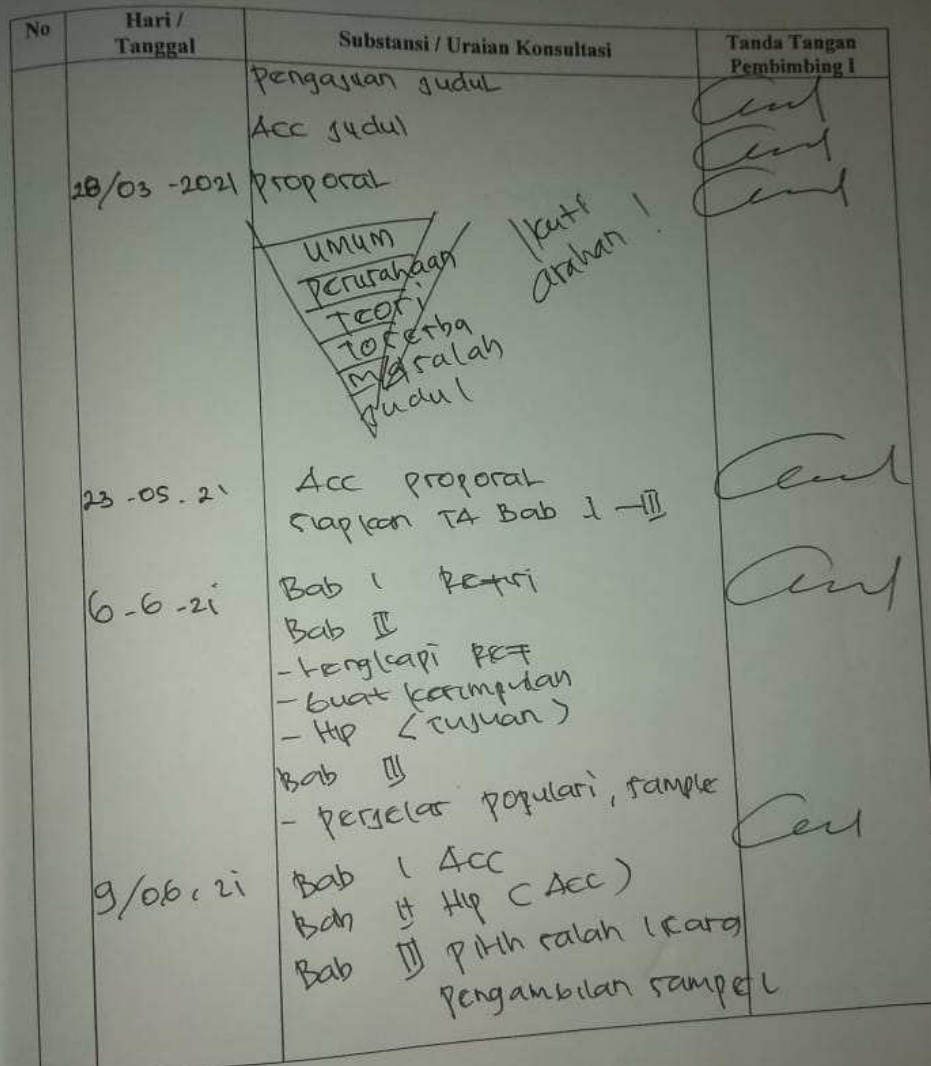 No Hari / Tanggal Substansi / Uraian Konsultasi Tanda Tangan Pembimbing I
Pengajuan Judul
Acc Judul
28/03 -2021 Proposal
Umum
Perusahaan
Teori
Toserba
Masalah
Judul
Ikuti arahan !
23 -05 . 21 Acc proposal
siapkan TA Bab I - III
6-6-21 Bab I Revisi
Bab II
- Lengkapi REF
- buat kesimpulan
- Hip (Tujuan)
Bab III
- perjelas populasi, sample
9/06. 21 Bab I Acc
Bab II Hip (Acc)
Bab III pilih salah 1 cara
pengambilan sampel